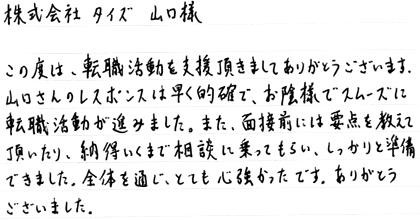 株式会社 タイズ 山口様
この度は、転職活動を支援頂きましてありがとうございます。
山口さんのレスポンスは早く的確で、お陰様でスムーズに
転職活動が進みました。また、面接前には要点を教えて
頂いたり、納得いくまで相談に乗ってもらい、しっかりと準備
できました。全体を通じ、とても心強かったです。ありがとう
ございました。